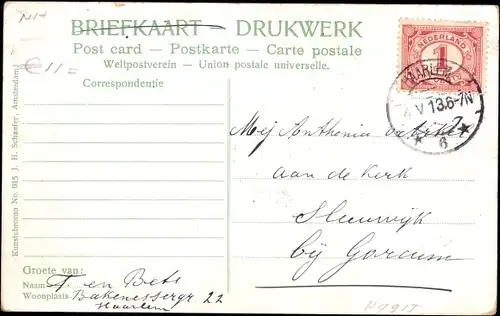 NH
€11=
BRIEFKAART - DRUKWERK
Post card — Postkarte — Carte postale
Weltpostverein — Union postale universelle.
Correspondentie
NEDERLAND
1
HAARLEM
V 13.6-7N
6
Kunstchromo No. 915 J. H. Schaefer, Amsterdam
Mej Anthenia
aan de Kerk
Sleeuwijk
bij Gorcum
Groete van:
Naam T en Bets
Woonplaats Bakenessergr 22
Haarlem